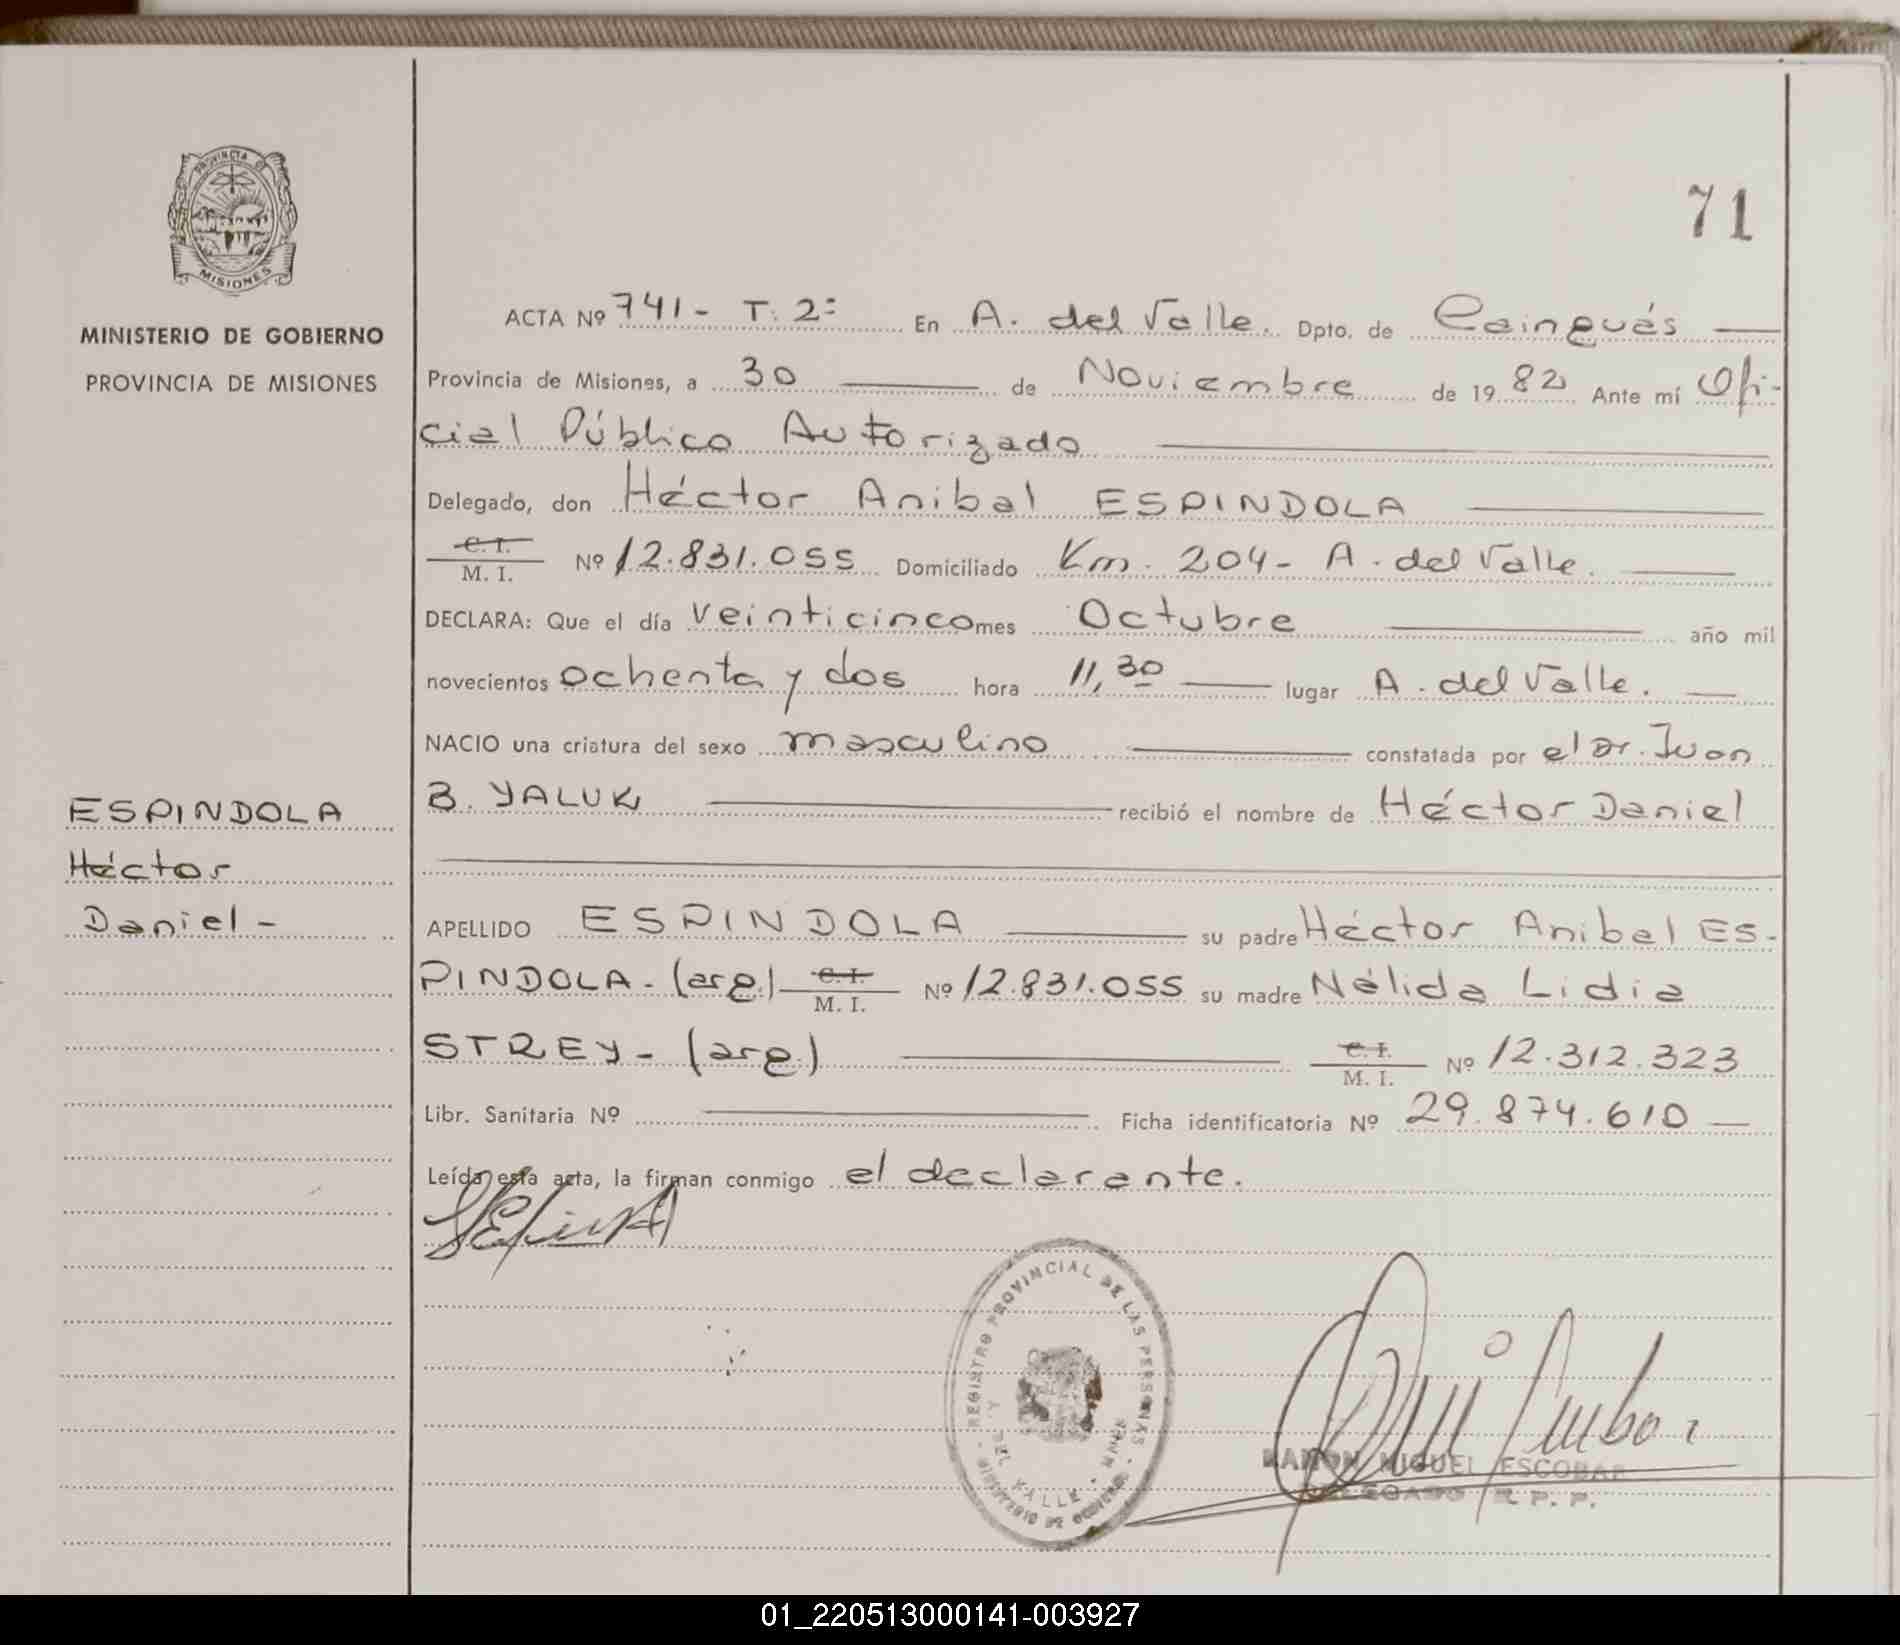 PROVINCIA DE
MISIONES
MINISTERIO DE GOBIERNO
PROVINCIA DE MISIONES
ESPINDOLA
Héctor
Daniel -
71
ACTA Nº 741 - T: 2º En A. del Valle. Dpto. de Cainguás
Provincia de Misiones, a 30 de Noviembre de 1982 Ante mí Ofi-
cial Público Autorizado
Delegado, don Héctor Anibal ESPINDOLA
C. I. / M. I. Nº 12.831.055 Domiciliado Km. 204 - A. del Valle.
DECLARA: Que el día veinticinco mes Octubre año mil
novecientos ochenta y dos hora 11,30 lugar A. del Valle.
NACIO una criatura del sexo masculino constatada por el Dr. Juan
B. YALUK recibió el nombre de Héctor Daniel
APELLIDO ESPINDOLA su padre Héctor Anibal ES-
PINDOLA - (arg.) C. I. / M. I. Nº 12.831.055 su madre Nélida Lidia
STREY - (arg.) C. I. / M. I. Nº 12.312.323
Libr. Sanitaria Nº Ficha identificatoria Nº 29.874.610
Leída esta acta, la firman conmigo el declarante.
REGISTRO PROVINCIAL DE LAS PERSONAS
DEL VALLE
RAMON MIGUEL ESCOBAR
DELEGADO R. P. P.
01_220513000141-003927